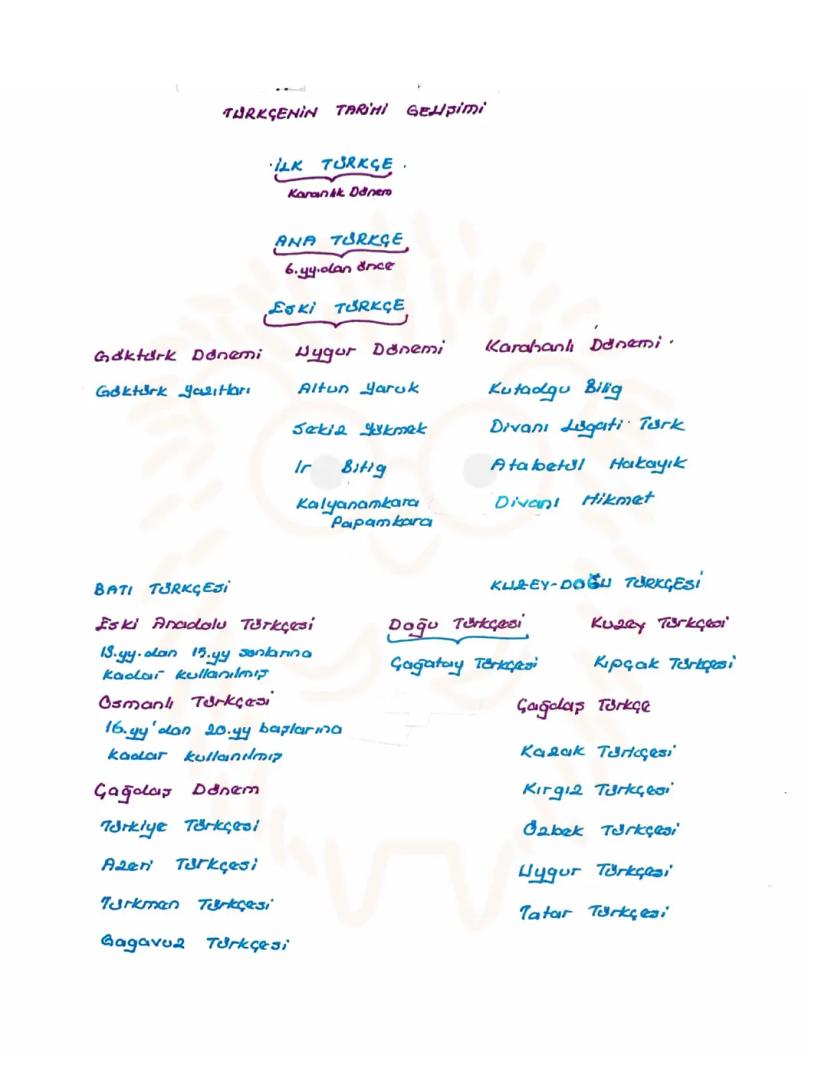 TÜRKÇENİN TARİHİ GELİŞİMİ
İLK TÜRKÇE
Karanlık Dönem
ANA TÜRKÇE
6.yy.dan önce
ESKİ TÜRKÇE
Göktürk Dönemi
Göktürk Yazıtları
Uygur Dönemi
Altun Yaruk
Sekiz Yükmek
Ir Bitig
Kalyanamkara
Papamkara
Karahanlı Dönemi
Kutadgu Bilig
Divanı Lügati Türk
Atabetül Hakayık
Divanı Hikmet
BATI TÜRKÇESİ
Eski Anadolu Türkçesi
13.yy.dan 15.yy sonlarına
kadar kullanılmış
Osmanlı Türkçesi
16.yy'dan 20.yy başlarına
kadar kullanılmış
Çağdaş Dönem
Türkiye Türkçesi
Azeri Türkçesi
Türkmen Türkçesi
Gagavuz Türkçesi
KUZEY-DOĞU TÜRKÇESİ
Doğu Türkçesi
Çağatay Türkçesi
Kuzey Türkçesi
Kıpçak Türkçesi
Çağdaş Türkçe
Kazak Türkçesi
Kırgız Türkçesi
Özbek Türkçesi
Uygur Türkçesi
Tatar Türkçesi